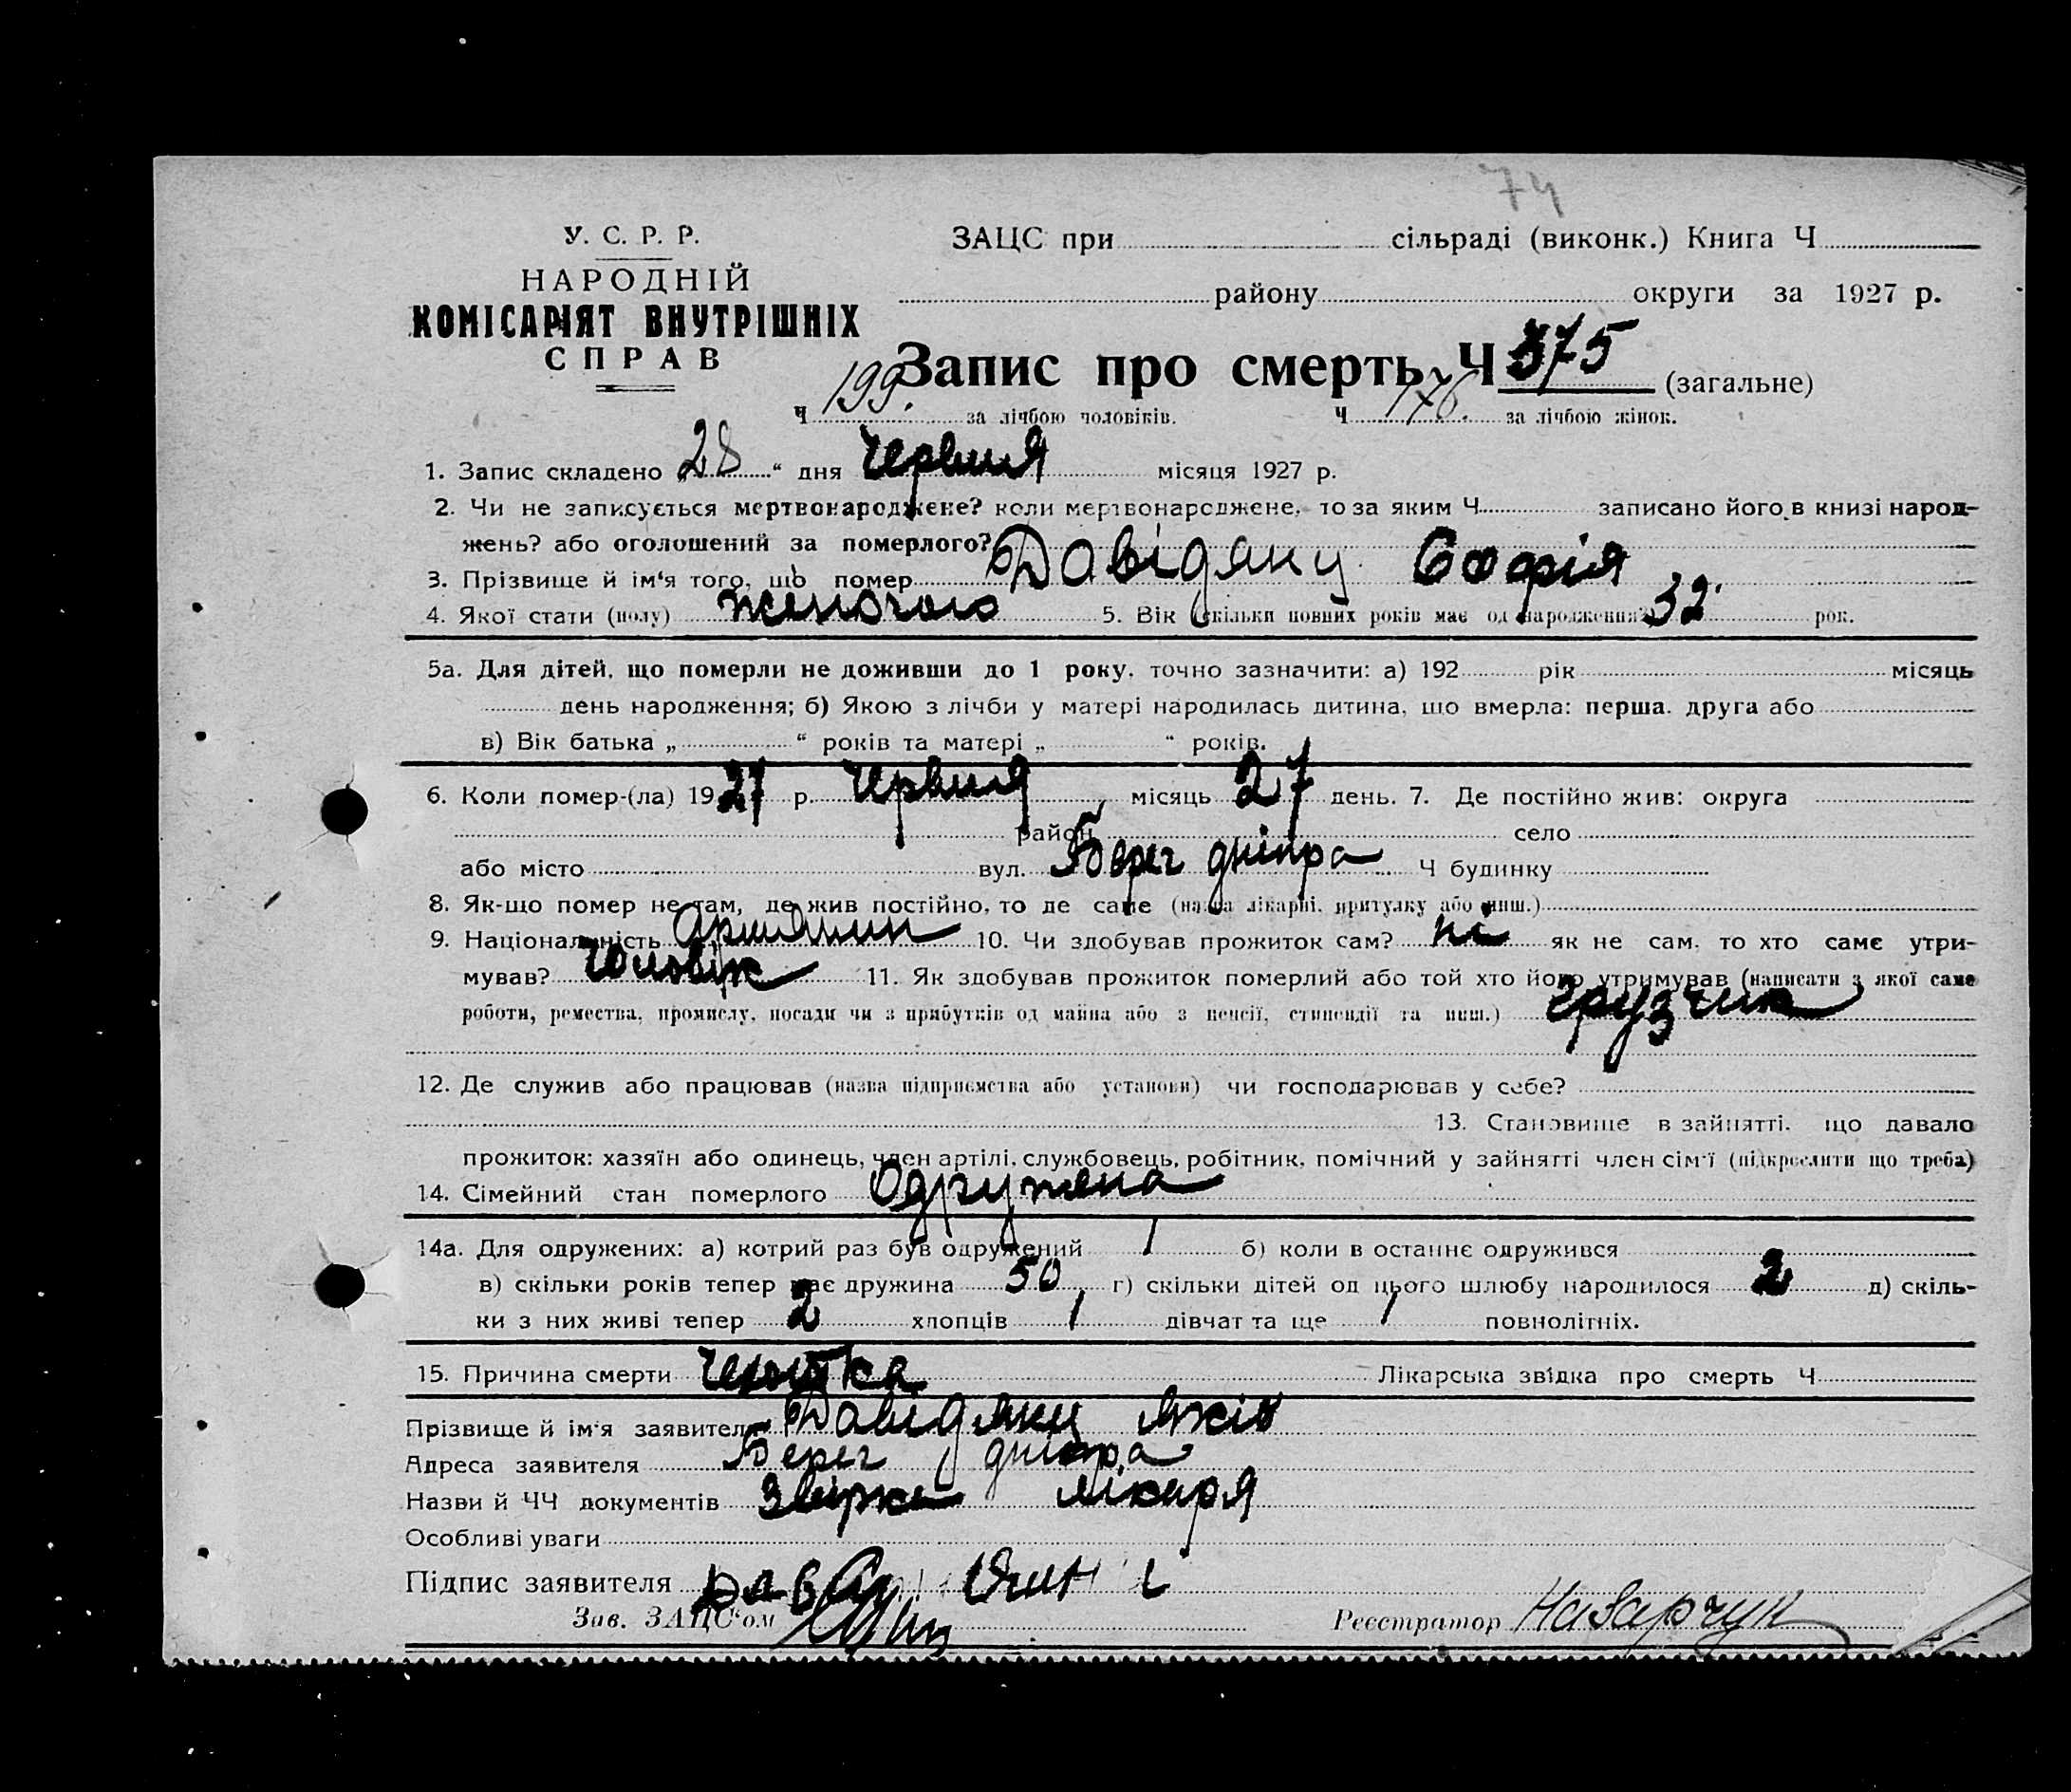 74
У. С. Р. Р.
НАРОДНІЙ
КОМІСАРІЯТ ВНУТРІШНІХ
СПРАВ
ЗАЦС при сільраді (виконк.) Книга Ч
району округи за 1927 р.
Запис про смерть Ч 375 (загальне)
Ч 199. за лічбою чоловіків. Ч 176. за лічбою жінок.
1. Запис складено „28“ дня Червня місяця 1927 р.
2. Чи не записується мертвонароджене? коли мертвонароджене, то за яким Ч записано його в книзі народ-
жень? або оголошений за померлого?
3. Прізвище й ім‘я того, що помер Давідянц Софія
4. Якої стати (полу) женочого 5. Вік (скільки повних років має од народження) 32 рок.
5а. Для дітей, що померли не доживши до 1 року, точно зазначити: а) 192 рік місяць
день народження; б) Якою з лічби у матері народилась дитина, що вмерла: перша. друга або
в) Вік батька „ “ років та матері „ “ років.
6. Коли помер-(ла) 1927 р. Червня місяць 27 день. 7. Де постійно жив: округа
район село
або місто вул. Берег дніпра Ч будинку
8. Як-що помер не там, де жив постійно, то де саме (назва лікарні, притулку або инш.)
9. Національність Армянин 10. Чи здобував прожиток сам? ні як не сам, то хто саме утри-
мував? Чоловік 11. Як здобував прожиток померлий або той хто його утримував (написати з якої саме
роботи, ремества, промислу, посади чи з прибутків од майна або з пенсії, стипендії та инш.) грузчик
12. Де служив або працював (назва підприємства або установи) чи господарював у себе?
13. Становище в зайнятті, що давало
прожиток: хазяїн або одинець, член артілі, службовець, робітник, помічний у зайнятті член сім‘ї (підкреслити що треба)
14. Сімейний стан померлого Одружена
14а. Для одружених: а) котрий раз був одружений 1 б) коли в останнє одружився
в) скільки років тепер має дружина 50 г) скільки дітей од цього шлюбу народилося 2 д) скіль-
ки з них живі тепер 2 хлопців 1 дівчат та ще 1 повнолітніх.
15. Причина смерти Лікарська звідка про смерть Ч
Прізвище й ім‘я заявителя Давідянц Яків
Адреса заявителя Берег дніпра
Назви й ЧЧ документів лікаря
Особливі уваги
Підпис заявителя
Зав. ЗАЦС‘ом Реєстратор Назарчук